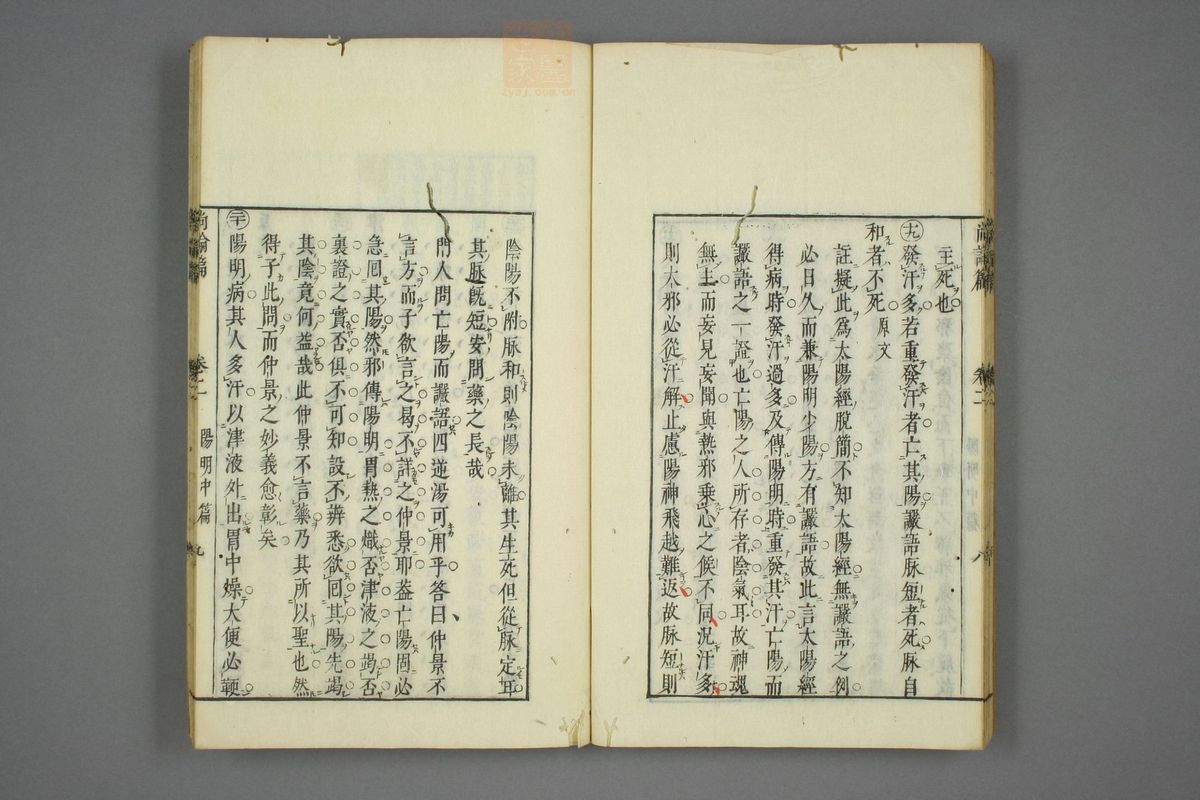 主死也
十九發汗多若重發汗者亡其陽讝語脉短者死脉自
和者不死 原文
註擬此為太陽經脫簡不知太陽經無讝語之例
必日久而兼陽明少陽方有讝語故此言太陽經
得病時發汗過多及傳陽明時重發其汗亡陽而
讝語之一證也亡陽之人所存者陰氣耳故神魂
無主而妄見妄聞與熱邪乗心之候不同況汗多
則大邪必從汗解止慮陽神飛越難返故脉短則
陰陽不附脉和則陰陽未離其生死但從脉定耳
其脉既短安問藥之長哉
門人問亡陽而讝語四逆湯可用乎答曰仲景不
言方而子欲言之曷不詳之仲景耶盖亡陽固必
急囘其陽然邪傳陽明胃熱之熾否津液之竭否
裏證之實否俱不可知設不辨悉欲囘其陽先竭
其陰竟何益哉此仲景不言藥乃其所以聖也然
得子此問而仲景之妙義愈彰矣
二十陽明病其人多汗以津液外出胃中燥大便必鞕
尚論篇 卷二 陽明中篇 九